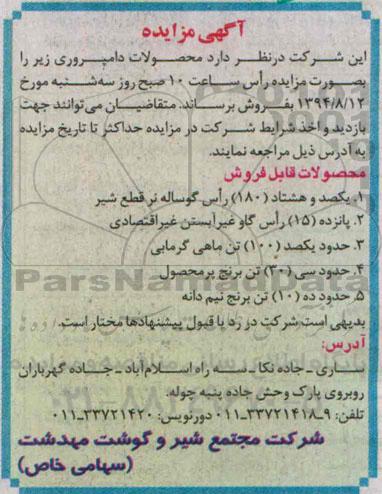 آگهی مزایده
این شرکت درنظر دارد محصولات دامپروری زیر را
بصورت مزایده رأس ساعت ۱۰ صبح روز سه‌شنبه مورخ
۱۳۹۴/۸/۱۲ بفروش برساند. متقاضیان می‌توانند جهت
بازدید و اخذ شرایط شرکت در مزایده حداکثر تا تاریخ مزایده
به آدرس ذیل مراجعه نمایند.
محصولات قابل فروش
۱. یکصد و هشتاد (۱۸۰) رأس گوساله نر قطع شیر
۲. پانزده (۱۵) رأس گاو غیرآبستن غیراقتصادی
۳. حدود یکصد (۱۰۰) تن ماهی گرمابی
۴. حدود سی (۳۰) تن برنج پرمحصول
۵. حدود ده (۱۰) تن برنج نیم دانه
بدیهی است شرکت در رد یا قبول پیشنهادها مختار است.
آدرس:
ساری ـ جاده نکا ـ سه راه اسلام‌آباد ـ جاده گهرباران
روبروی پارک وحش جاده پنبه چوله.
تلفن: ۹ـ۳۳۷۲۱۴۱۸ـ۰۱۱ دورنویس: ۳۳۷۲۱۴۲۰ـ۰۱۱
شرکت مجتمع شیر و گوشت مهدشت
(سهامی خاص)
ParsNamadData